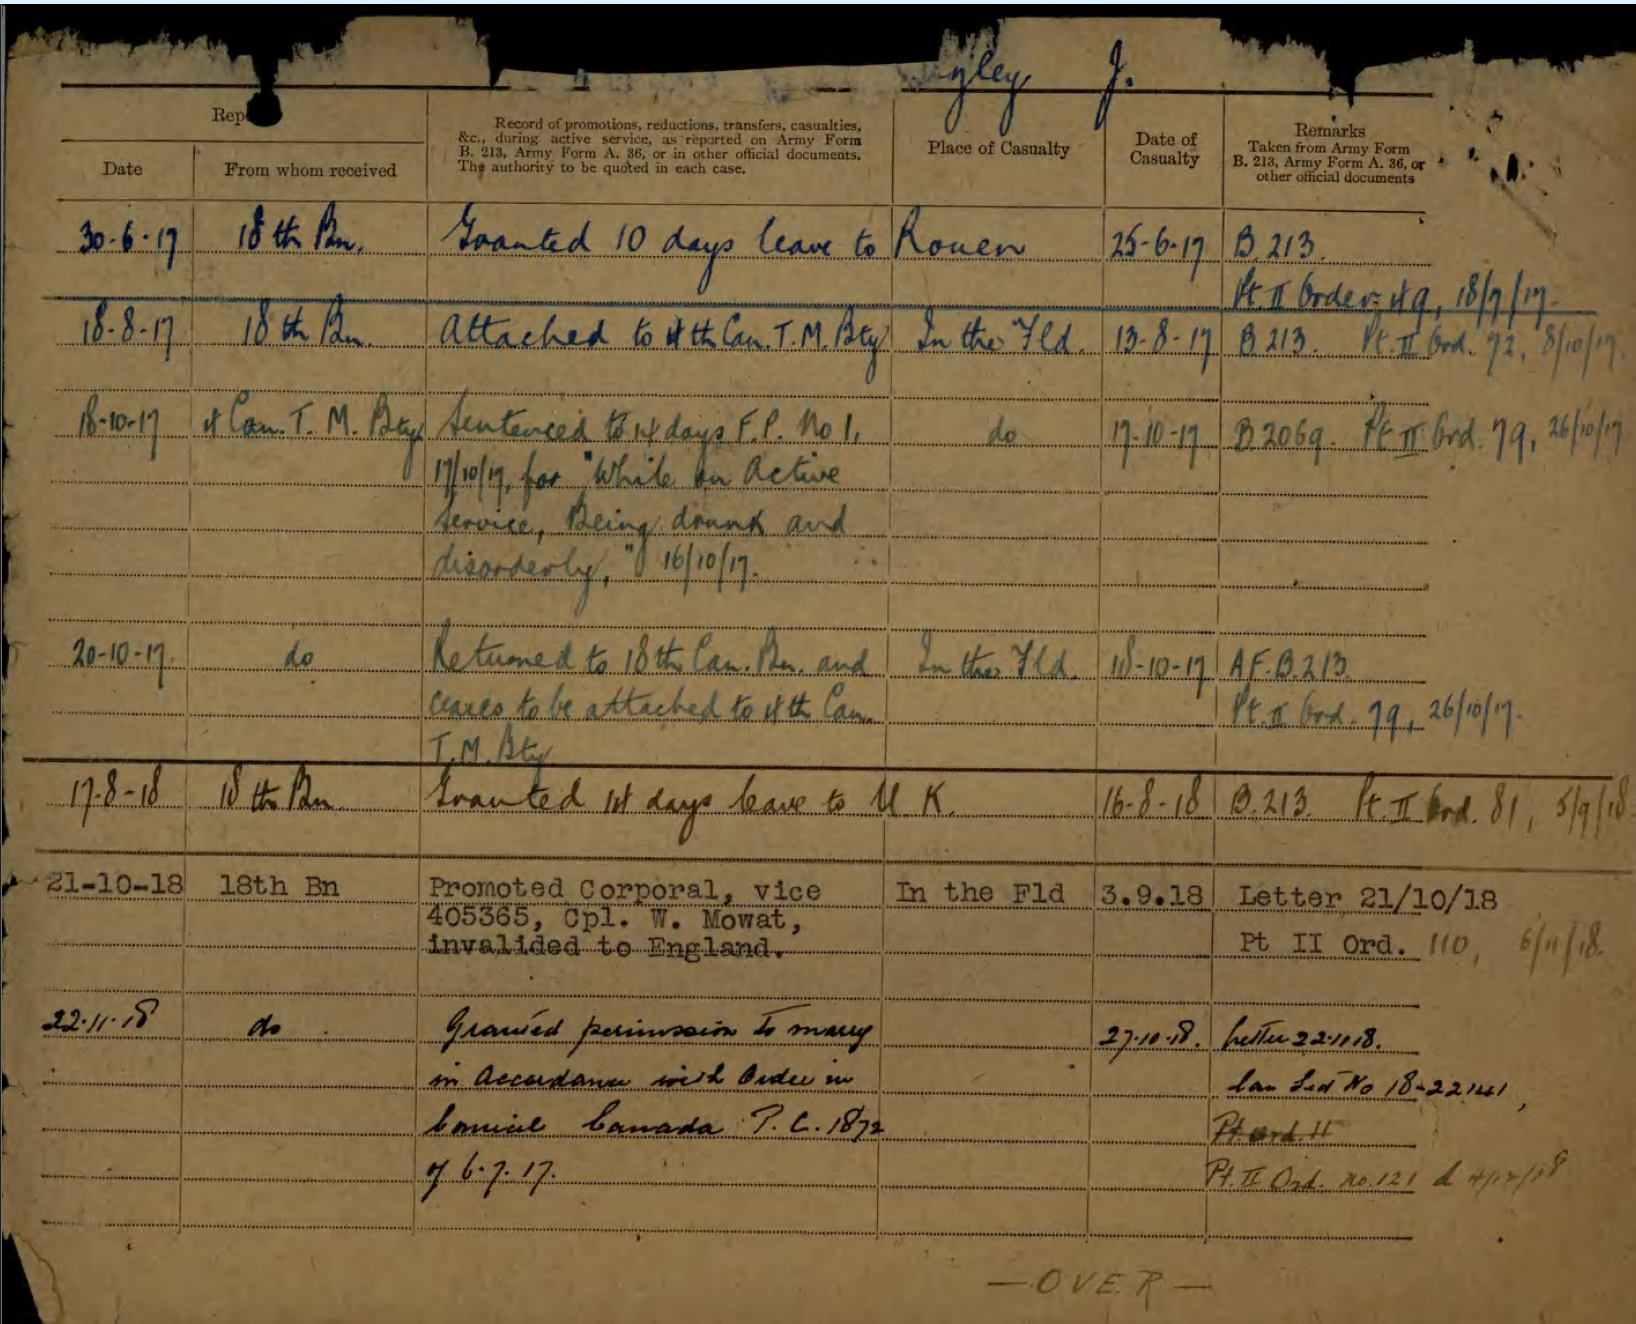 gley J.
Report
Date
From whom received
Record of promotions, reductions, transfers, casualties,
&c., during active service, as reported on Army Form
B. 213, Army Form A. 36, or in other official documents.
The authority to be quoted in each case.
Place of Casualty
Date of
Casualty
Remarks
Taken from Army Form
B. 213, Army Form A. 36, or
other official documents
30-6-17 18th Bn. Granted 10 days leave to Rouen 25-6-17 B.213.
Pt. II Order 49, 18/7/17.
18-8-17 18th Bn. Attached to 4th Can. T. M. Bty In the Fld. 13-8-17 B 213. Pt. II Ord. 72, 8/10/17.
18-10-17 4 Can. T. M. Bty Sentenced to 14 days F.P. No 1, do 17-10-17 B 2069. Pt. II Ord. 79, 26/10/17
17/10/17, for "While on Active
Service, Being drunk and
disorderly," 16/10/17.
20-10-17. do Returned to 18th Can. Bn. and In the Fld. 18-10-17 A.F.B.213.
ceases to be attached to 4th Can. Pt. II Ord. 79, 26/10/17.
T.M. Bty
17-8-18 18th Bn. Granted 14 days leave to U.K. 16-8-18 B.213. Pt. II Ord. 81, 5/9/18.
21-10-18 18th Bn Promoted Corporal, vice In the Fld 3.9.18 Letter 21/10/18
405365, Cpl. W. Mowat,
invalided to England. Pt II Ord. 110, 6/11/18.
22.11.18 do Granted permission to marry 27.10.18. Letter 22.11.18.
in Accordance with Order in Can Sec No 18-22141,
Council Canada P.C. 1872 Pt Ord. II
of 6.7.17. Pt. II Ord. No. 121 d 4/12/18
— OVER —